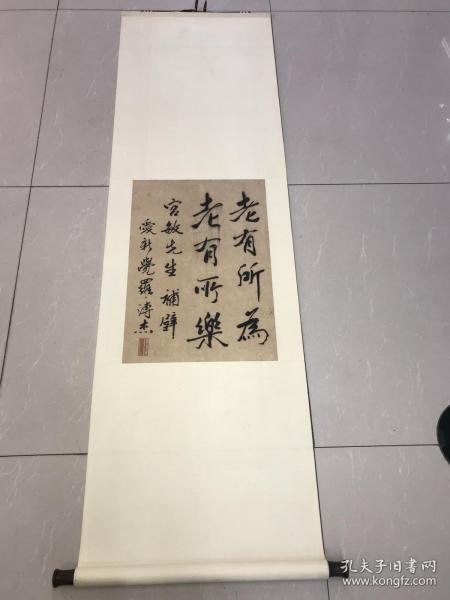 老有所為
老有所樂
宮敏先生補壁
愛新覺羅溥杰
孔夫子旧书网
www.kongfz.com